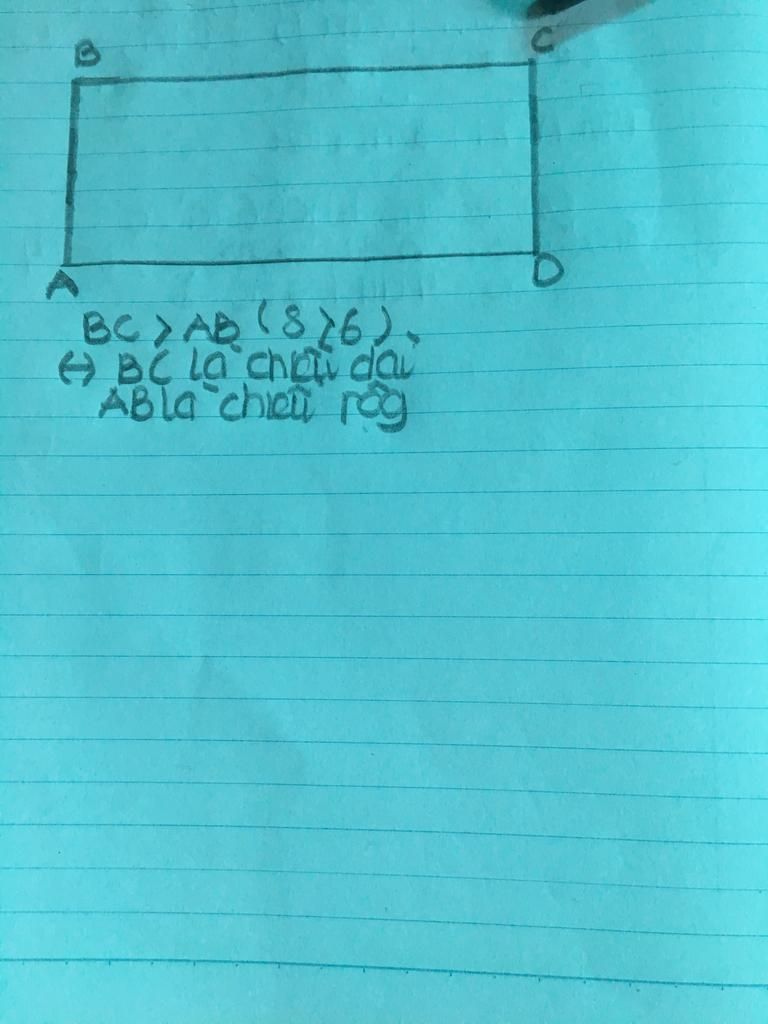 B
C
A
D
BC > AB (8 > 6).
↔ BC là chiều dài
AB là chiều rộg